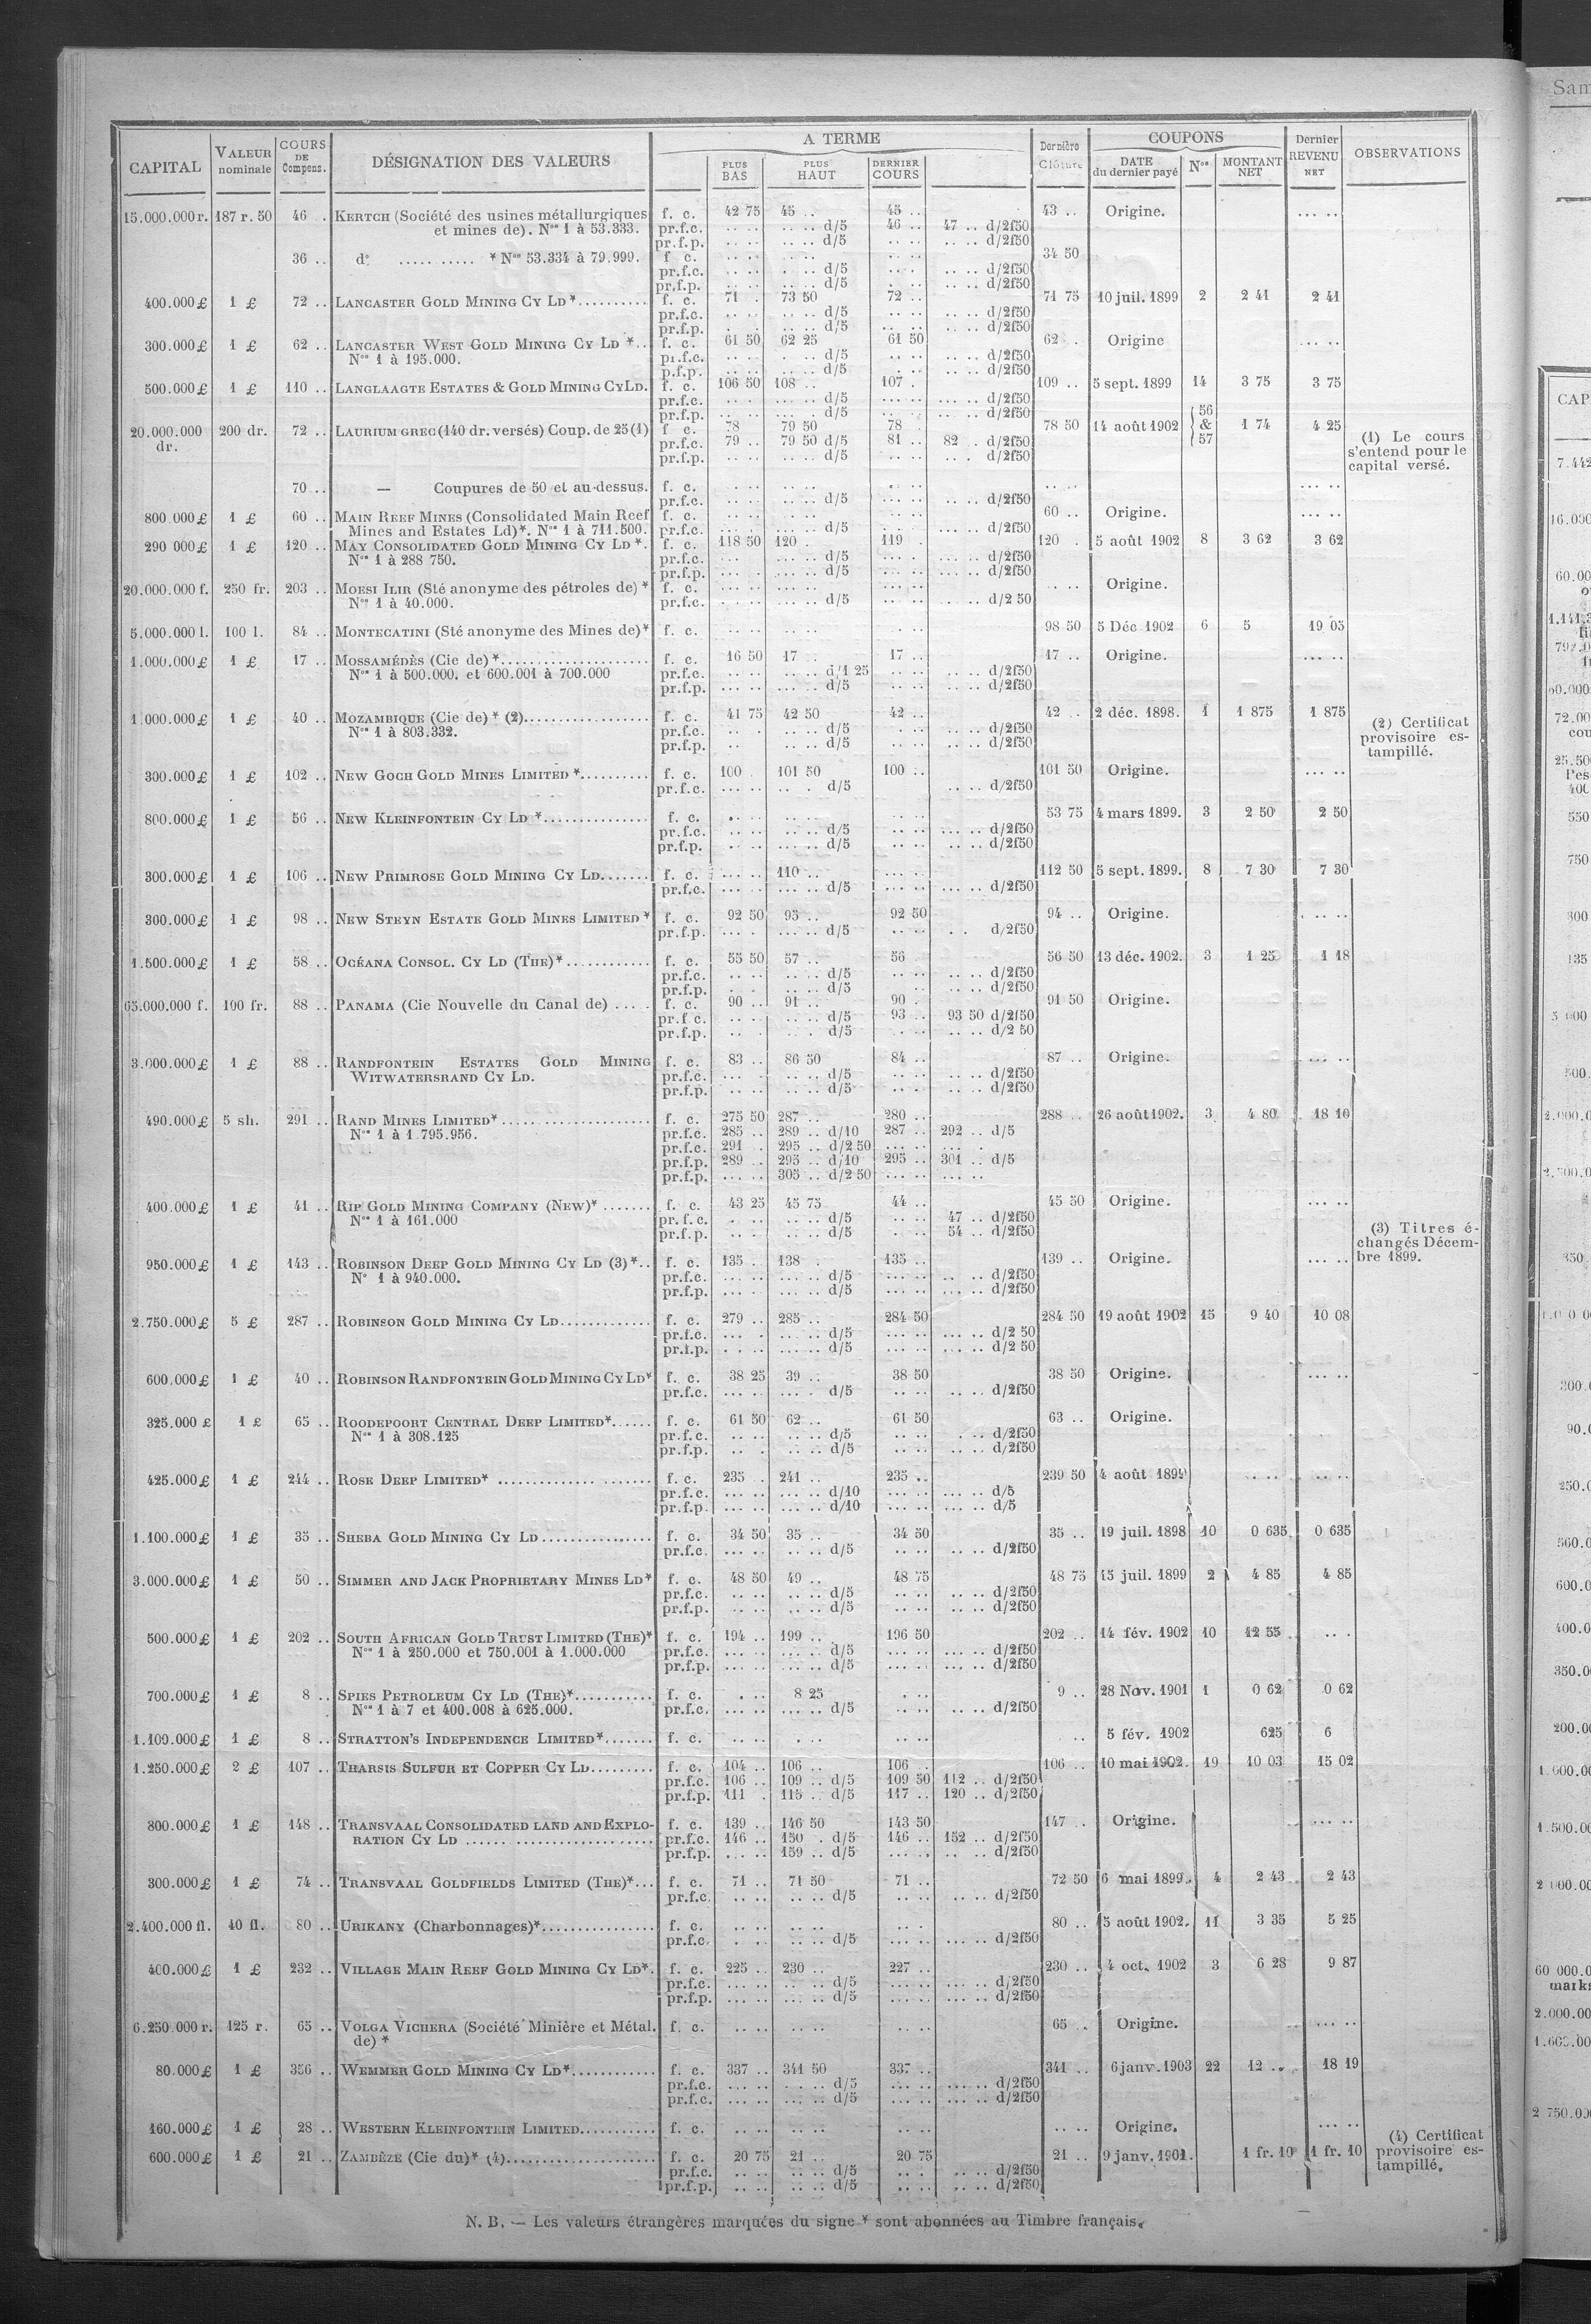 CAPITAL VALEUR nominale COURS DE Compens. DÉSIGNATION DES VALEURS A TERME PLUS BAS PLUS HAUT DERNIER COURS Dernière Clôture COUPONS DATE du dernier payé Nos MONTANT NET Dernier REVENU NET OBSERVATIONS
15.000.000 r. 187 r. 50 46 . KERTCH (Société des usines métallurgiques f. c. 42 75 45 .. 45 .. 43 .. Origine. ... ..
et mines de). Nos 1 à 53.333. pr.f.c. .. .. .. .. d/5 46 .. 47 .. d/2f50
pr.f.p. .. .. .. .. d/5 .. .. .. .. d/2f50
36 .. do ..... ..... * Nos 53.334 à 79.999. f c. .. .. .. .. .. .. 34 50
pr.f.c. .. .. . .. d/5 .. . .. .. d/2f50
pr.f.p. .. .. .. .. d/5 . .. .. .. d/2f50
400.000 £ 1 £ 72 .. LANCASTER GOLD MINING CY LD *.......... f. c. 71 . 73 50 72 .. 71 75 10 juil. 1899 2 2 41 2 41
pr.f.c. .. .. .. .. d/5 .. .. .. .. d/2f50
pr.f.p. . . .. .. d/5 .. .. .. .. d/2f50
300.000 £ 1 £ 62 .. LANCASTER WEST GOLD MINING CY LD *.. f. c. 61 50 62 25 61 50 62 . Origine ... ..
Nos 1 à 195.000. pr.f.c. .. .. .. .. d/5 .. .. .. .. d/2f50
p.f.p. .. .. .. .. d/5 . .. .. .. d/2f50
500.000 £ 1 £ 110 .. LANGLAAGTE ESTATES & GOLD MINING CY LD. f. c. 106 50 108 .. 107 . 109 .. 5 sept. 1899 14 3 75 3 75
pr.f.c. .. . ... .. d/5 ... .. ... .. d/2f50
pr.f.p. .. .. ... . d/5 .. . .. .. d/2f50
20.000.000 dr. 200 dr. 72 .. LAURIUM GREC (140 dr. versés) Coup. de 25 (1) f c. 78 79 50 78 . 78 50 14 août 1902 56 & 57 1 74 4 25
pr.f.c. 79 .. 79 50 d/5 81 .. 82 . d/2f50
pr.f.p. .. .. .. .. d/5 .. .. .. . d/2f50
(1) Le cours
s'entend pour le
capital versé.
70 .. — Coupures de 50 et au-dessus. f. c. .. .. .. .. .. .. .. .. ... ..
pr.f.c. .. .. .. .. d/5 ... .. .. .. d/2f50
800.000 £ 1 £ 60 .. MAIN REEF MINES (Consolidated Main Reef f. c. .. .. .. .. .. .. 60 .. Origine. ... ..
Mines and Estates Ld)*. Nos 1 à 711.500. pr.f.c. ... . ... .. d/5 .. . ... .. d/2f50
290 000 £ 1 £ 120 .. MAY CONSOLIDATED GOLD MINING CY LD *. f. c. 118 50 120 . 119 . 120 . 5 août 1902 8 3 62 3 62
Nos 1 à 288 750. pr.f.c. ... . ... .. d/5 ... . ... .. d/2f50
pr.f.p. ... . ... .. d/5 .. .. ... .. d/2f50
20.000.000 f. 250 fr. 203 .. MOESI ILIR (Sté anonyme des pétroles de) * f. c. ... .. ... .. ... .. .. .. Origine.
Nos 1 à 40.000. pr.f.c. . .. .. ... .. d/5 ... .. .. .. d/2 50
5.000.000 l. 100 l. 84 .. MONTECATINI (Sté anonyme des Mines de)* f. c. .. .. .. .. . .. 98 50 5 Déc 1902 6 5 19 05
1.000.000 £ 1 £ 17 .. MOSSAMÉDÈS (Cie de) *..................... f. c. 16 50 17 .. 17 .. 17 .. Origine. ... ..
Nos 1 à 500.000. et 600.001 à 700.000 pr.f.c. .. .. .. .. d/1 25 .. .. .. .. d/2f50
pr.f.p. ... .. ... .. d/5 .. .. .. .. d/2f50
1.000.000 £ 1 £ 40 .. MOZAMBIQUE (Cie de) * (2).................. f. c. 41 75 42 50 42 .. 42 .. 2 déc. 1898. 1 1 875 1 875
Nos 1 à 803.332. pr.f.c. .. . .. .. d/5 .. .. .. .. d/2f50
pr.f.p. .. .. .. d/5 . .. .. .. d/2f50
(2) Certificat
provisoire es-
tampillé.
300.000 £ 1 £ 102 .. NEW GOCH GOLD MINES LIMITED *.......... f. c. 100 . 101 50 100 .. 101 50 Origine. ... ..
pr.f.c. ... .. .. . d/5 .. .. d/2f50
800.000 £ 1 £ 56 .. NEW KLEINFONTEIN CY LD *............... f. c. . .. .. .. .. .. 53 75 4 mars 1899. 3 2 50 2 50
pr.f.c. .. .. ... .. d/5 .. .. ... .. d/2f50
pr.f.p. .. .. ... .. d/5 .. .. .. .. d/2f50
300.000 £ 1 £ 106 .. NEW PRIMROSE GOLD MINING CY LD....... f. c. ... .. 110 .. ... .. 112 50 5 sept. 1899. 8 7 30 7 30
pr.f.c. ... .. ... .. d/5 ... .. ... .. d/2f50
300.000 £ 1 £ 98 .. NEW STEYN ESTATE GOLD MINES LIMITED * f. c. 92 50 95 .. 92 50 94 .. Origine. . .. ..
pr.f.p. ... . ... .. d/5 .. .. . . d/2f50
1.500.000 £ 1 £ 58 .. OCÉANA CONSOL. CY LD (THE) *............ f. c. 55 50 57 .. 56 56 50 13 déc. 1902. 3 1 25 1 18
pr.f.c. .. .. .. .. d/5 .. .. .. .. d/2f50
pr.f.p. . . .. .. d/5 .. .. .. d/2f50
65.000.000 f. 100 fr. 88 .. PANAMA (Cie Nouvelle du Canal de) .... . f. c. 90 .. 91 .. 90 . 91 50 Origine.
pr.f c. .. .. .. .. d/5 93 .. 93 50 d/2f50
pr.f.p. .. . . . d/5 . .. .. .. d/2 50
3.000.000 £ 1 £ 88 .. RANDFONTEIN ESTATES GOLD MINING f. c. 83 .. 86 50 84 .. 87 .. Origine. ... ..
WITWATERSRAND CY LD. pr.f.c. ... .. .. d/5 .. .. .. .. d/2f50
pr.f.p. .. .. .. .. d/5 .. . .. .. d/2f50
490.000 £ 5 sh. 291 .. RAND MINES LIMITED* ...................... f. c. 275 50 287 .. 280 .. 288 .. 26 août 1902. 3 4 80 18 10
Nos 1 à 1.795.956. pr.f.c. 285 .. 289 .. d/10 287 .. 292 .. d/5
pr.f.c. 291 . 295 .. d/2 50 ... .. ... .
pr.f.p. 289 .. 295 .. d/10 295 .. 301 .. d/5
pr.f.p. ... .. 305 .. d/2 50 ... .. ... ..
400.000 £ 1 £ 41 .. RIP GOLD MINING COMPANY (NEW)* ....... f. c. 43 25 45 75 44 .. 45 50 Origine. ... ..
Nos 1 à 161.000 pr. f. c. . .. .. .. d/5 .. .. 47 .. d/2f50
pr.f.p. .. . .. .. d/5 . .. 54 .. d/2f50
(3) Titres é-
changés Décem-
bre 1899.
950.000 £ 1 £ 143 .. ROBINSON DEEP GOLD MINING CY LD (3) *.. f. c. 135 . 138 . 135 .. 139 .. Origine. ... ..
No 1 à 940.000. pr.f.c. ... .. ... .. d/5 ... .. .. .. d/2f50
pr.f.p. ... .. ... .. d/5 ... .. ... .. d/2f50
2.750.000 £ 5 £ 287 .. ROBINSON GOLD MINING CY LD............. f. c. 279 .. 285 .. 284 50 284 50 19 août 1902 15 9 40 10 08
pr.f.c. ... . ... .. d/5 ... .. ... .. d/2 50
pr.f.p. . . .. ... .. d/5 ... .. ... .. d/2 50
600.000 £ 1 £ 40 .. ROBINSON RANDFONTEIN GOLD MINING CY LD* f. c. 38 25 39 .. 38 50 38 50 Origine. ... ..
pr.f.c. ... .. ... . d/5 .. .. .. .. d/2f50
325.000 £ 1 £ 65 .. ROODEPOORT CENTRAL DEEP LIMITED*...... f. c. 61 50 62 .. 61 50 63 .. Origine.
Nos 1 à 308.125 pr.f.c. .. .. .. .. d/5 .. .. . .. d/2f50
pr.f.p. .. . .. .. d/5 .. .. .. .. d/2f50
425.000 £ 1 £ 244 .. ROSE DEEP LIMITED* ..................... f. c. 235 . 241 .. 235 .. 239 50 4 août 1899 .. .. ... ..
pr.f.c. ... .. ... .. d/10 ... .. ... .. d/5
pr.f.p. ... .. ... .. d/10 ... .. ... .. d/5
1.100.000 £ 1 £ 35 .. SHEBA GOLD MINING CY LD ............... f. c. 34 50 35 .. 34 50 35 .. 19 juil. 1898 10 0 635 0 635
pr.f.c. ... .. .. .. d/5 .. .. .. .. d/2f50
3.000.000 £ 1 £ 50 .. SIMMER AND JACK PROPRIETARY MINES LD* f. c. 48 50 49 .. 48 75 48 75 15 juil. 1899 2 4 85 4 85
pr.f.c. .. .. .. .. d/5 .. .. .. .. d/2f50
pr.f.p. .. .. .. .. d/5 .. .. .. .. d/2f50
500.000 £ 1 £ 202 .. SOUTH AFRICAN GOLD TRUST LIMITED (THE)* f. c. 194 .. 199 .. 196 50 202 .. 14 fév. 1902 10 12 55 .. .
Nos 1 à 250.000 et 750.001 à 1.000.000 pr.f.c. ... .. ... .. d/5 ... .. ... .. d/2f50
pr.f.p. ... .. ... .. d/5 ... .. ... .. d/2f50
700.000 £ 1 £ 8 .. SPIES PETROLEUM CY LD (THE)*........... f. c. . .. 8 25 . .. 9 .. 28 Nov. 1901 1 0 62 0 62
Nos 1 à 7 et 400.008 à 625.000. pr.f.c. ... .. ... .. d/5 .. .. .. .. d/2f50
1.100.000 £ 1 £ 8 .. STRATTON'S INDEPENDENCE LIMITED*....... f. c. .. .. . .. .. .. .. 5 fév. 1902 625 6
1.250.000 £ 2 £ 107 .. THARSIS SULFUR ET COPPER CY LD......... f. c. 104 .. 106 .. 106 . 106 .. 10 mai 1902. 19 10 03 15 02
pr.f.c. 106 .. 109 .. d/5 109 50 112 .. d/2f50
pr.f.p. 111 . 115 .. d/5 117 .. 120 .. d/2f50
800.000 £ 1 £ 148 .. TRANSVAAL CONSOLIDATED LAND AND EXPLO- f. c. 139 .. 146 50 143 50 147 .. Origine. ... ..
RATION CY LD ........................... pr.f.c. 146 .. 150 . d/5 146 .. 152 .. d/2f50
pr.f.p. ... .. 159 .. d/5 ... .. .. .. d/2f50
300.000 £ 1 £ 74 .. TRANSVAAL GOLDFIELDS LIMITED (THE)*... f. c. 71 .. 71 50 71 .. 72 50 6 mai 1899. 4 2 43 2 43
pr.f.c. .. .. .. .. d/5 .. .. .. .. d/2f50
2.400.000 fl. 40 fl. 80 .. URIKANY (Charbonnages)*................ f. c. .. .. .. .. .. . 80 .. 5 août 1902. 11 3 35 5 25
pr.f.c. . .. .. .. d/5 .. .. ... .. d/2f50
400.000 £ 1 £ 232 .. VILLAGE MAIN REEF GOLD MINING CY LD*. f. c. 225 .. 230 .. 227 .. 230 .. 4 oct. 1902 3 6 28 9 87
pr.f.c. ... .. ... .. d/5 ... .. ... .. d/2f50
pr.f.p. ... .. ... .. d/5 ... .. ... .. d/2f50
6.250.000 r. 125 r. 65 .. VOLGA VICHERA (Société Minière et Métal. f. c. .. .. .. .. .. .. 65 . Origine. ... ..
de) *
80.000 £ 1 £ 356 .. WEMMER GOLD MINING CY LD*............ f. c. 337 .. 341 50 337 .. 341 .. 6 janv. 1903 22 12 .. 18 19
pr.f.c. ... .. . .. .. d/5 ... .. ... .. d/2f50
pr.f.c. ... .. ... .. d/5 ... .. ... .. d/2f50
160.000 £ 1 £ 28 .. WESTERN KLEINFONTEIN LIMITED........... f. c. .. .. .. .. .. .. .. .. Origine. ... ..
600.000 £ 1 £ 21 .. ZAMBÈZE (Cie du)* (4)..................... f. c. 20 75 21 .. 20 75 21 .. 9 janv. 1901. 1 fr. 10 1 fr. 10
pr.f.c. .. .. .. .. d/5 .. . .. .. d/2f50
pr.f.p. .. .. .. .. d/5 .. .. .. .. d/2f50
(4) Certificat
provisoire es-
tampillé.
N. B. — Les valeurs étrangères marquées du signe * sont abonnées au Timbre français.
Sam
CAP
7.442
16.000
60.00
1.141.3
792.0
60.000
72.00
cou
25.50
l'es
400
550
750
300
135
5 000
500.
2.000.0
350
300.
90.0
250.0
560.0
600.0
400.0
350.0
200.00
1.500.00
60 000.0
marks
2.000.00
2 750.00